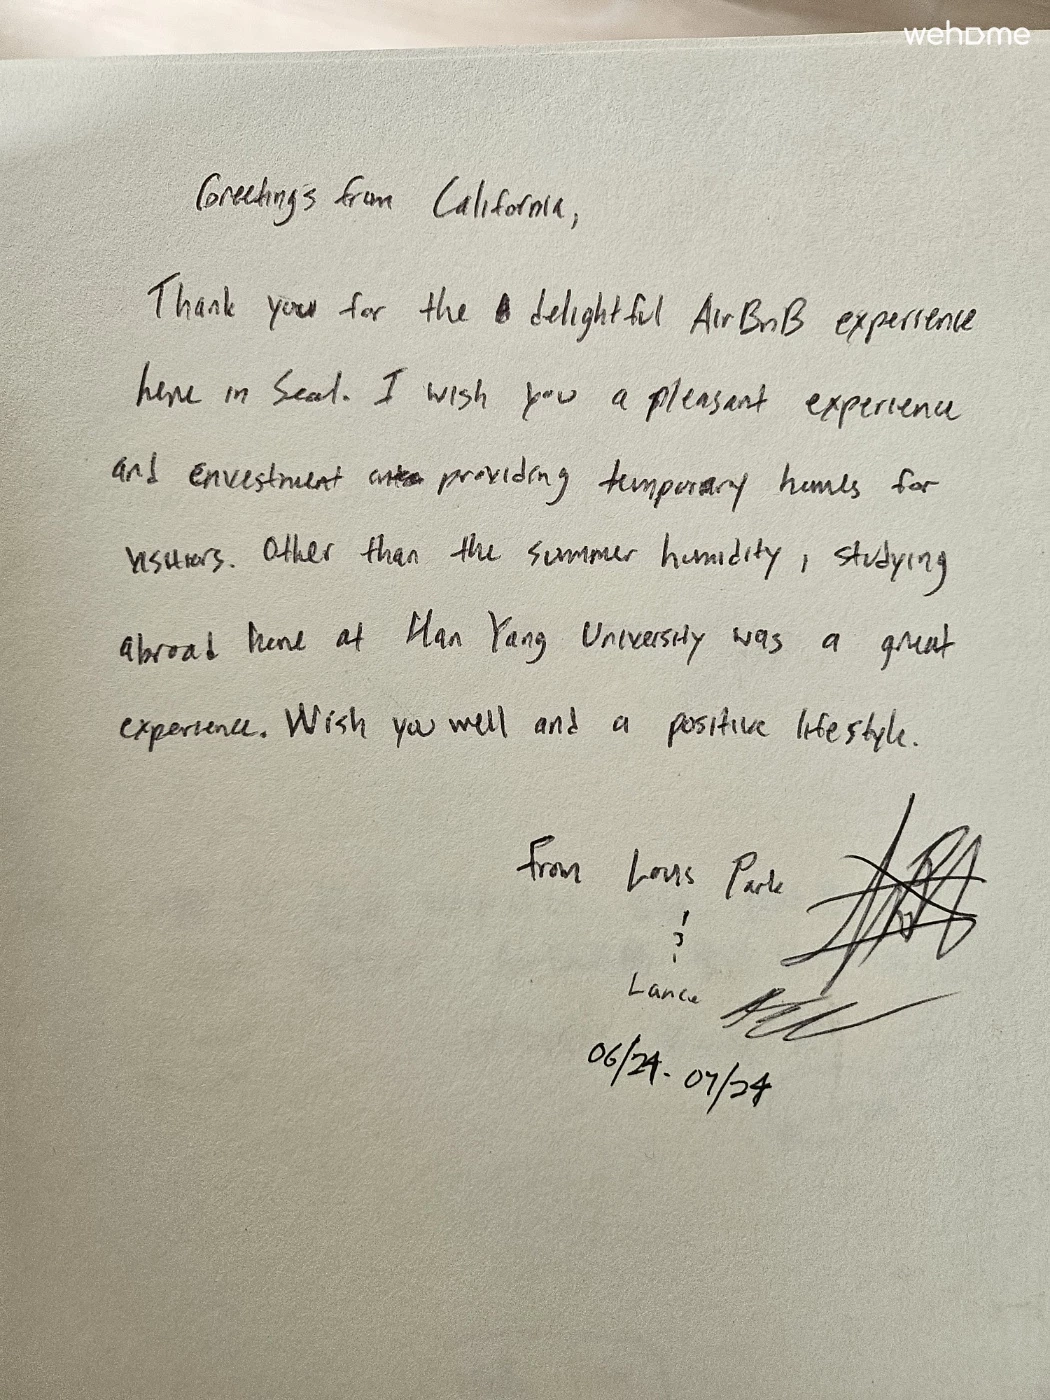 wehome
Greetings from California,
Thank you for the delightful AirBnB experience
here in Seoul. I wish you a pleasant experience
and envestment providing temporary homes for
visitors. Other than the summer humidity, studying
abroad here at Han Yang University was a great
experience. Wish you well and a positive lifestyle.
From Louis Park
&
Lance
06/24 - 07/24